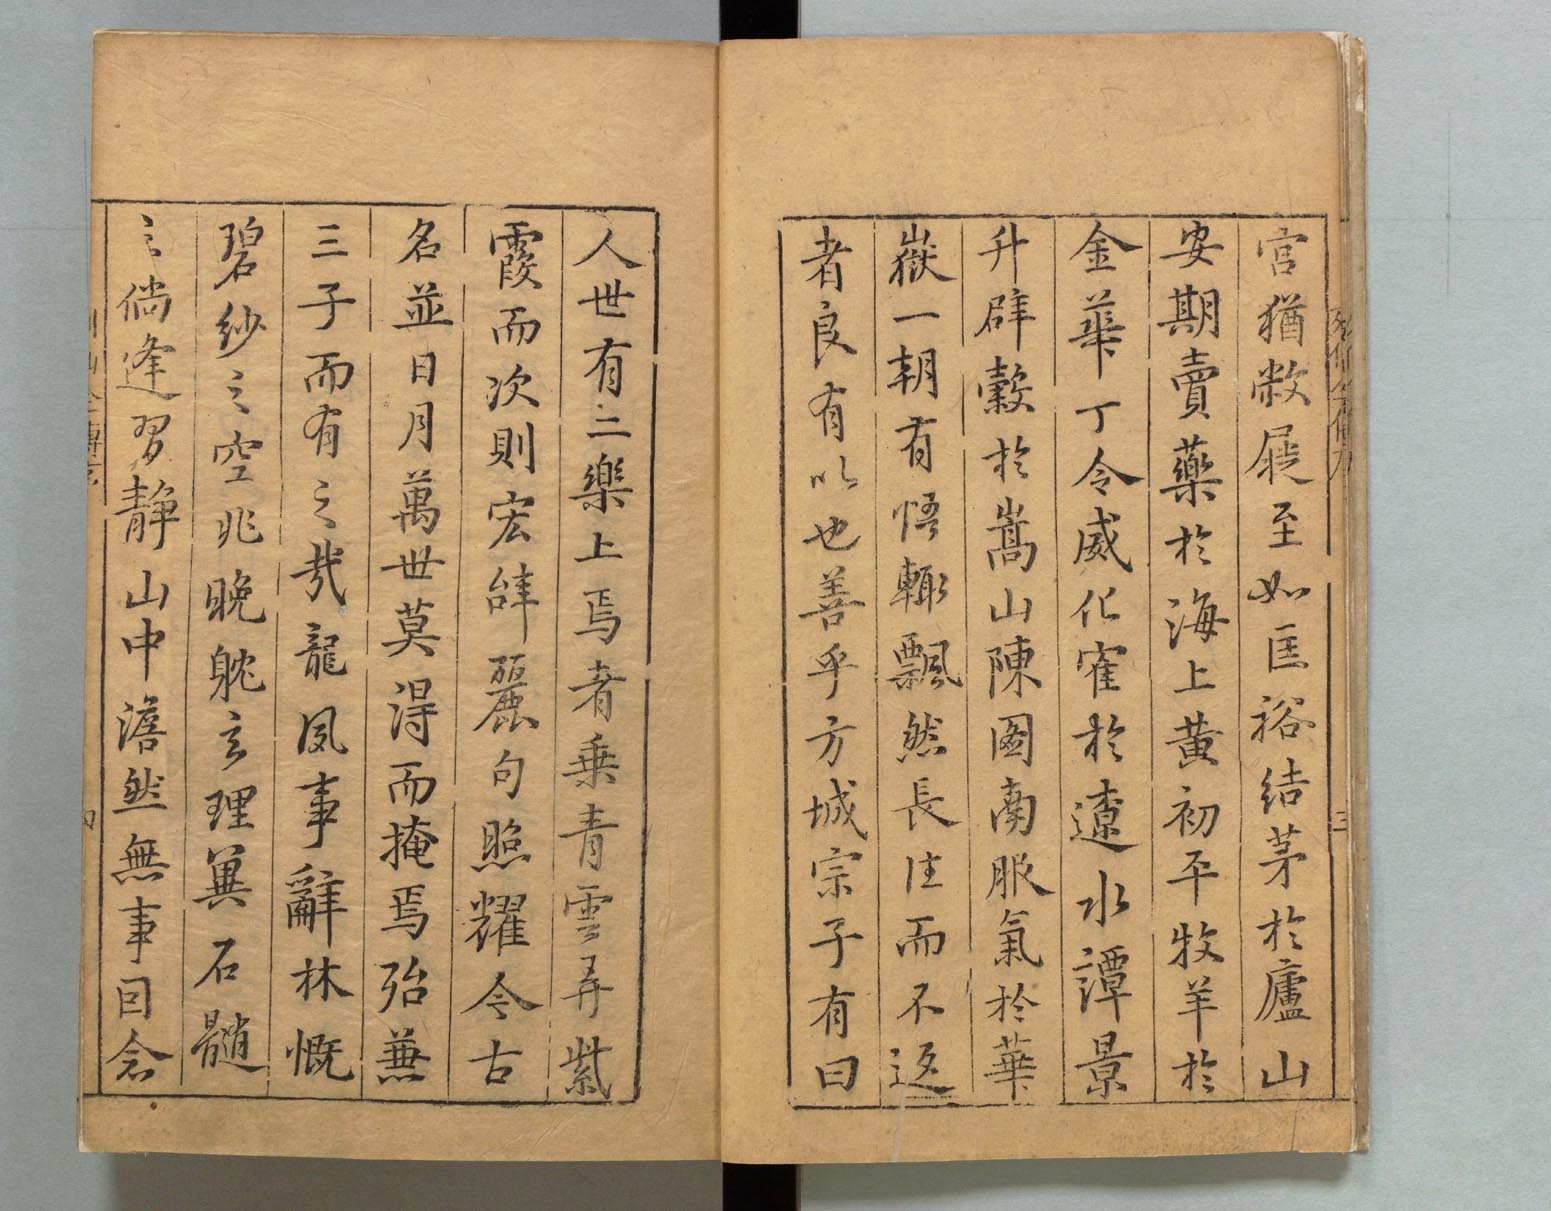 宫猶敝屣至如匡裕結茅於廬山
安期賣藥於海上黄初平牧羊於
金華丁令威化寉於遼水譚景
升辟穀於嵩山陳圖南服氣於華
嶽一朝有悟輙飄然長住而不返
者良有以也善乎方城宗子有曰
人世有二樂上焉者乗青雲弄紫
霞而次則宏辞麗句照耀今古
名並日月萬世莫得而掩焉殆兼
三子而有之哉龍凤事辭林慨
碧紗之空兆晚躭玄理巽石髓
之倘逢習静山中澹然無事囙念
三
四